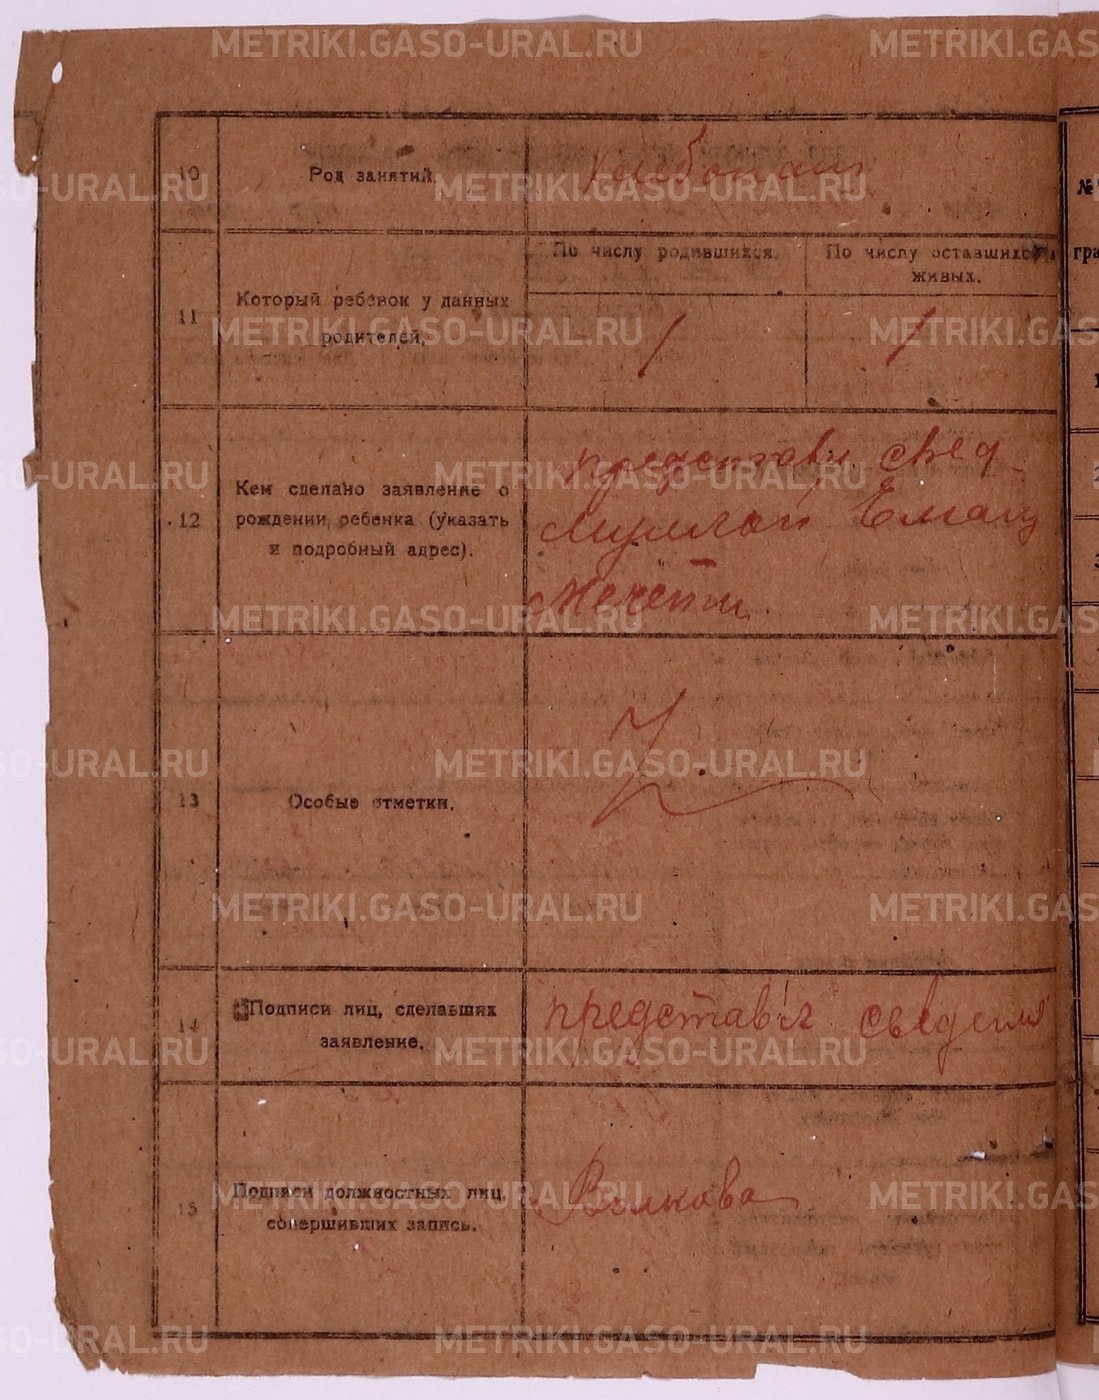 10
Род занятий.
Хлебопаш
11
Который ребенок у данных
родителей.
По числу родившихся.
По числу оставшихся
живых.
1
1
12
Кем сделано заявление о
рождении ребенка (указать
и подробный адрес).
представл свед
Муллой
Мечети.
13
Особые отметки.
14
Подписи лиц, сделавших
заявление.
представл сведения
15
Подписи должностных лиц,
совершивших запись.
Волкова
№
гра
METRIKI.GASO-URAL.RU